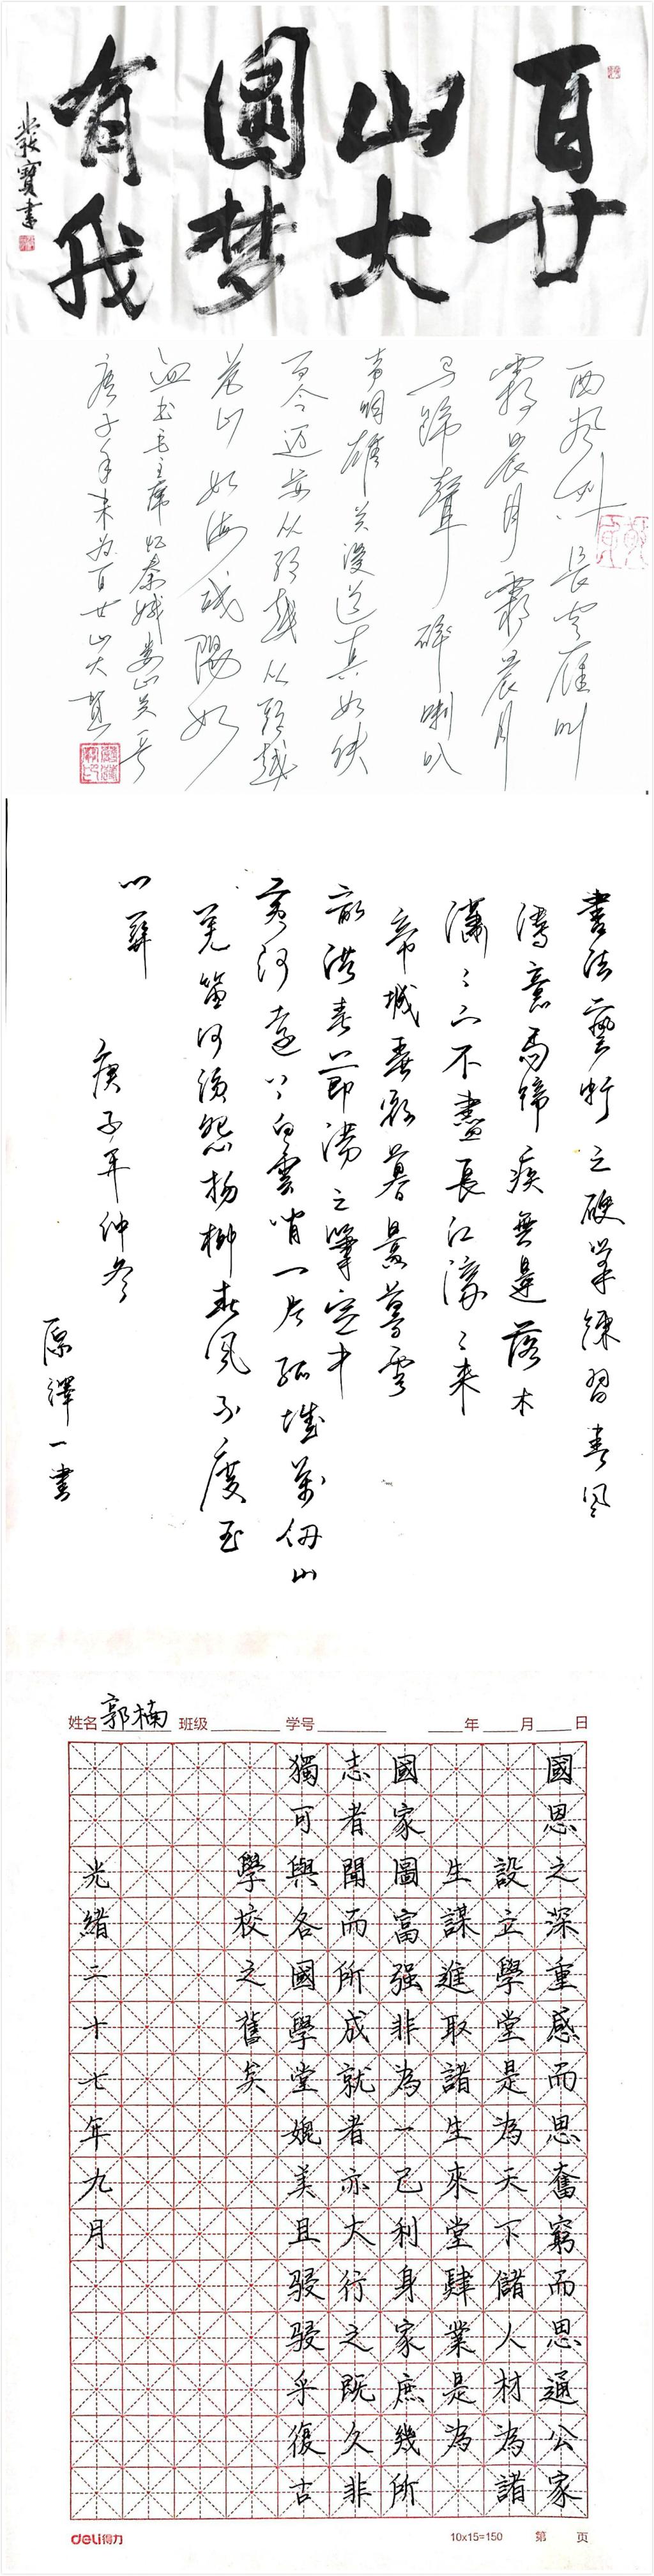 百廿
山大
圓梦
有我
寶書
西风烈 長空雁叫
霜晨月霜晨月
马蹄聲碎喇叭
声咽雄关漫道真如铁
而今迈步从頭越从頭越
苍山如海残陽如
血 书毛主席忆秦娥娄山关一首
庚子年末为百廿山大賀
書法藝術之硬筆練習春風
得意馬蹄疾無邊落木
瀟々下不盡長江滾々来
帝城春欲暮
黄河遠上白雲間一片孤城萬仞山
羌笛何須怨楊柳春風不度玉
門關
庚子年仲冬
原澤一書
姓名 郭楠 班级 学号 年 月 日
國恩之深重感而思奮窮而思通公家
設立學堂是為天下儲人材為諸
生謀進取諸生來堂肄業是為
國家圖富强非為一己利身家庶幾所
志者聞而所成就者亦大行之既久非
獨可與各國學堂媲美且駸駸乎復古
學校之舊矣
光緒二十七年九月
deli得力
10x15=150 第 页